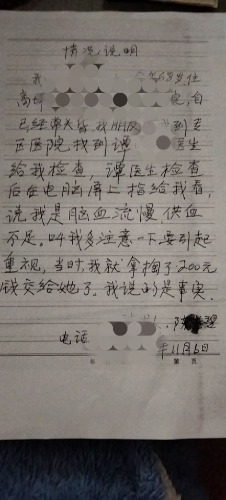 情况说明
我 68岁住
高坪 电,自
已经常头昏,我 到专
区医院,找到谭 医生
给我检查,谭医生检查
后在电脑屏上指给我看,
说我是脑血流慢供血
不足。叫我多注意一下要引起
重视,当时,我就拿掏了200元
钱交给她了。我说的是事实.
电话
年11月6日
第 页